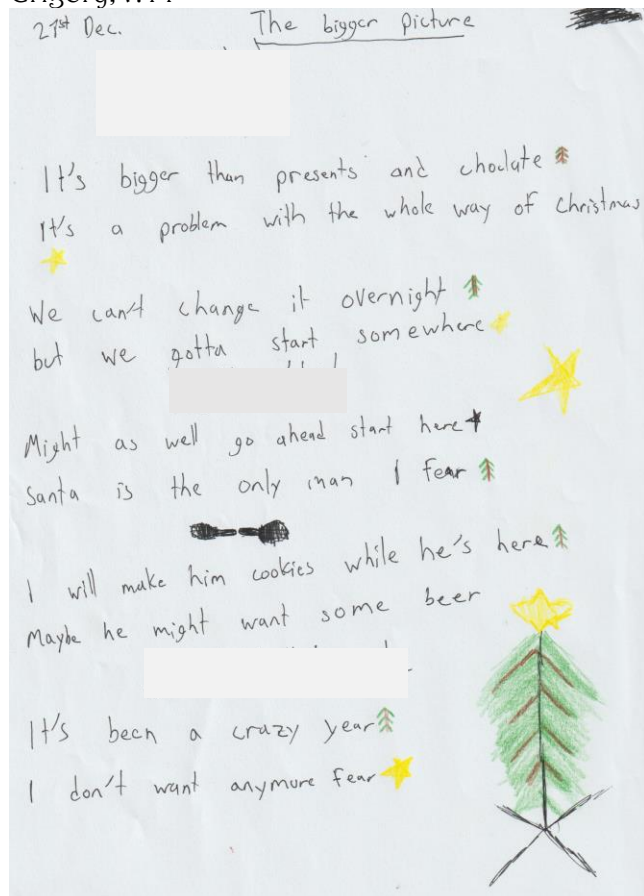 21st Dec.
The bigger picture
It's bigger than presents and choclate
It's a problem with the whole way of Christmas
We can't change it overnight
but we gotta start somewhere
Might as well go ahead start here
Santa is the only man I fear
I will make him cookies while he's here
Maybe he might want some beer
It's been a crazy year
I don't want anymore fear